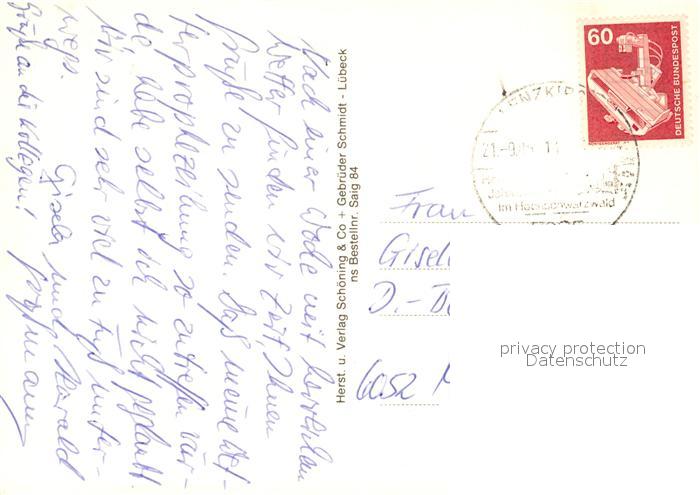 Nach einer Woche mit herrlichem
Wetter finden wir Zeit, Ihnen
Grüße zu senden. Daß meine Wet-
terprophezeihung so zutreffen wür-
de, habe selbst ich nicht geglaubt.
Wir sind sehr viel zu Fuß unter-
wegs.
Grüße an die Kollegen!
Gisela und Harald
Herst. u. Verlag Schöning & Co + Gebrüder Schmidt - Lübeck
ns Bestellnr. Saig 84
60
DEUTSCHE BUNDESPOST
LENZKIRCH
21.-9.
im Hochschwarzwald
Frau
Gisel
D.-B
6052 M
privacy protection
Datenschutz